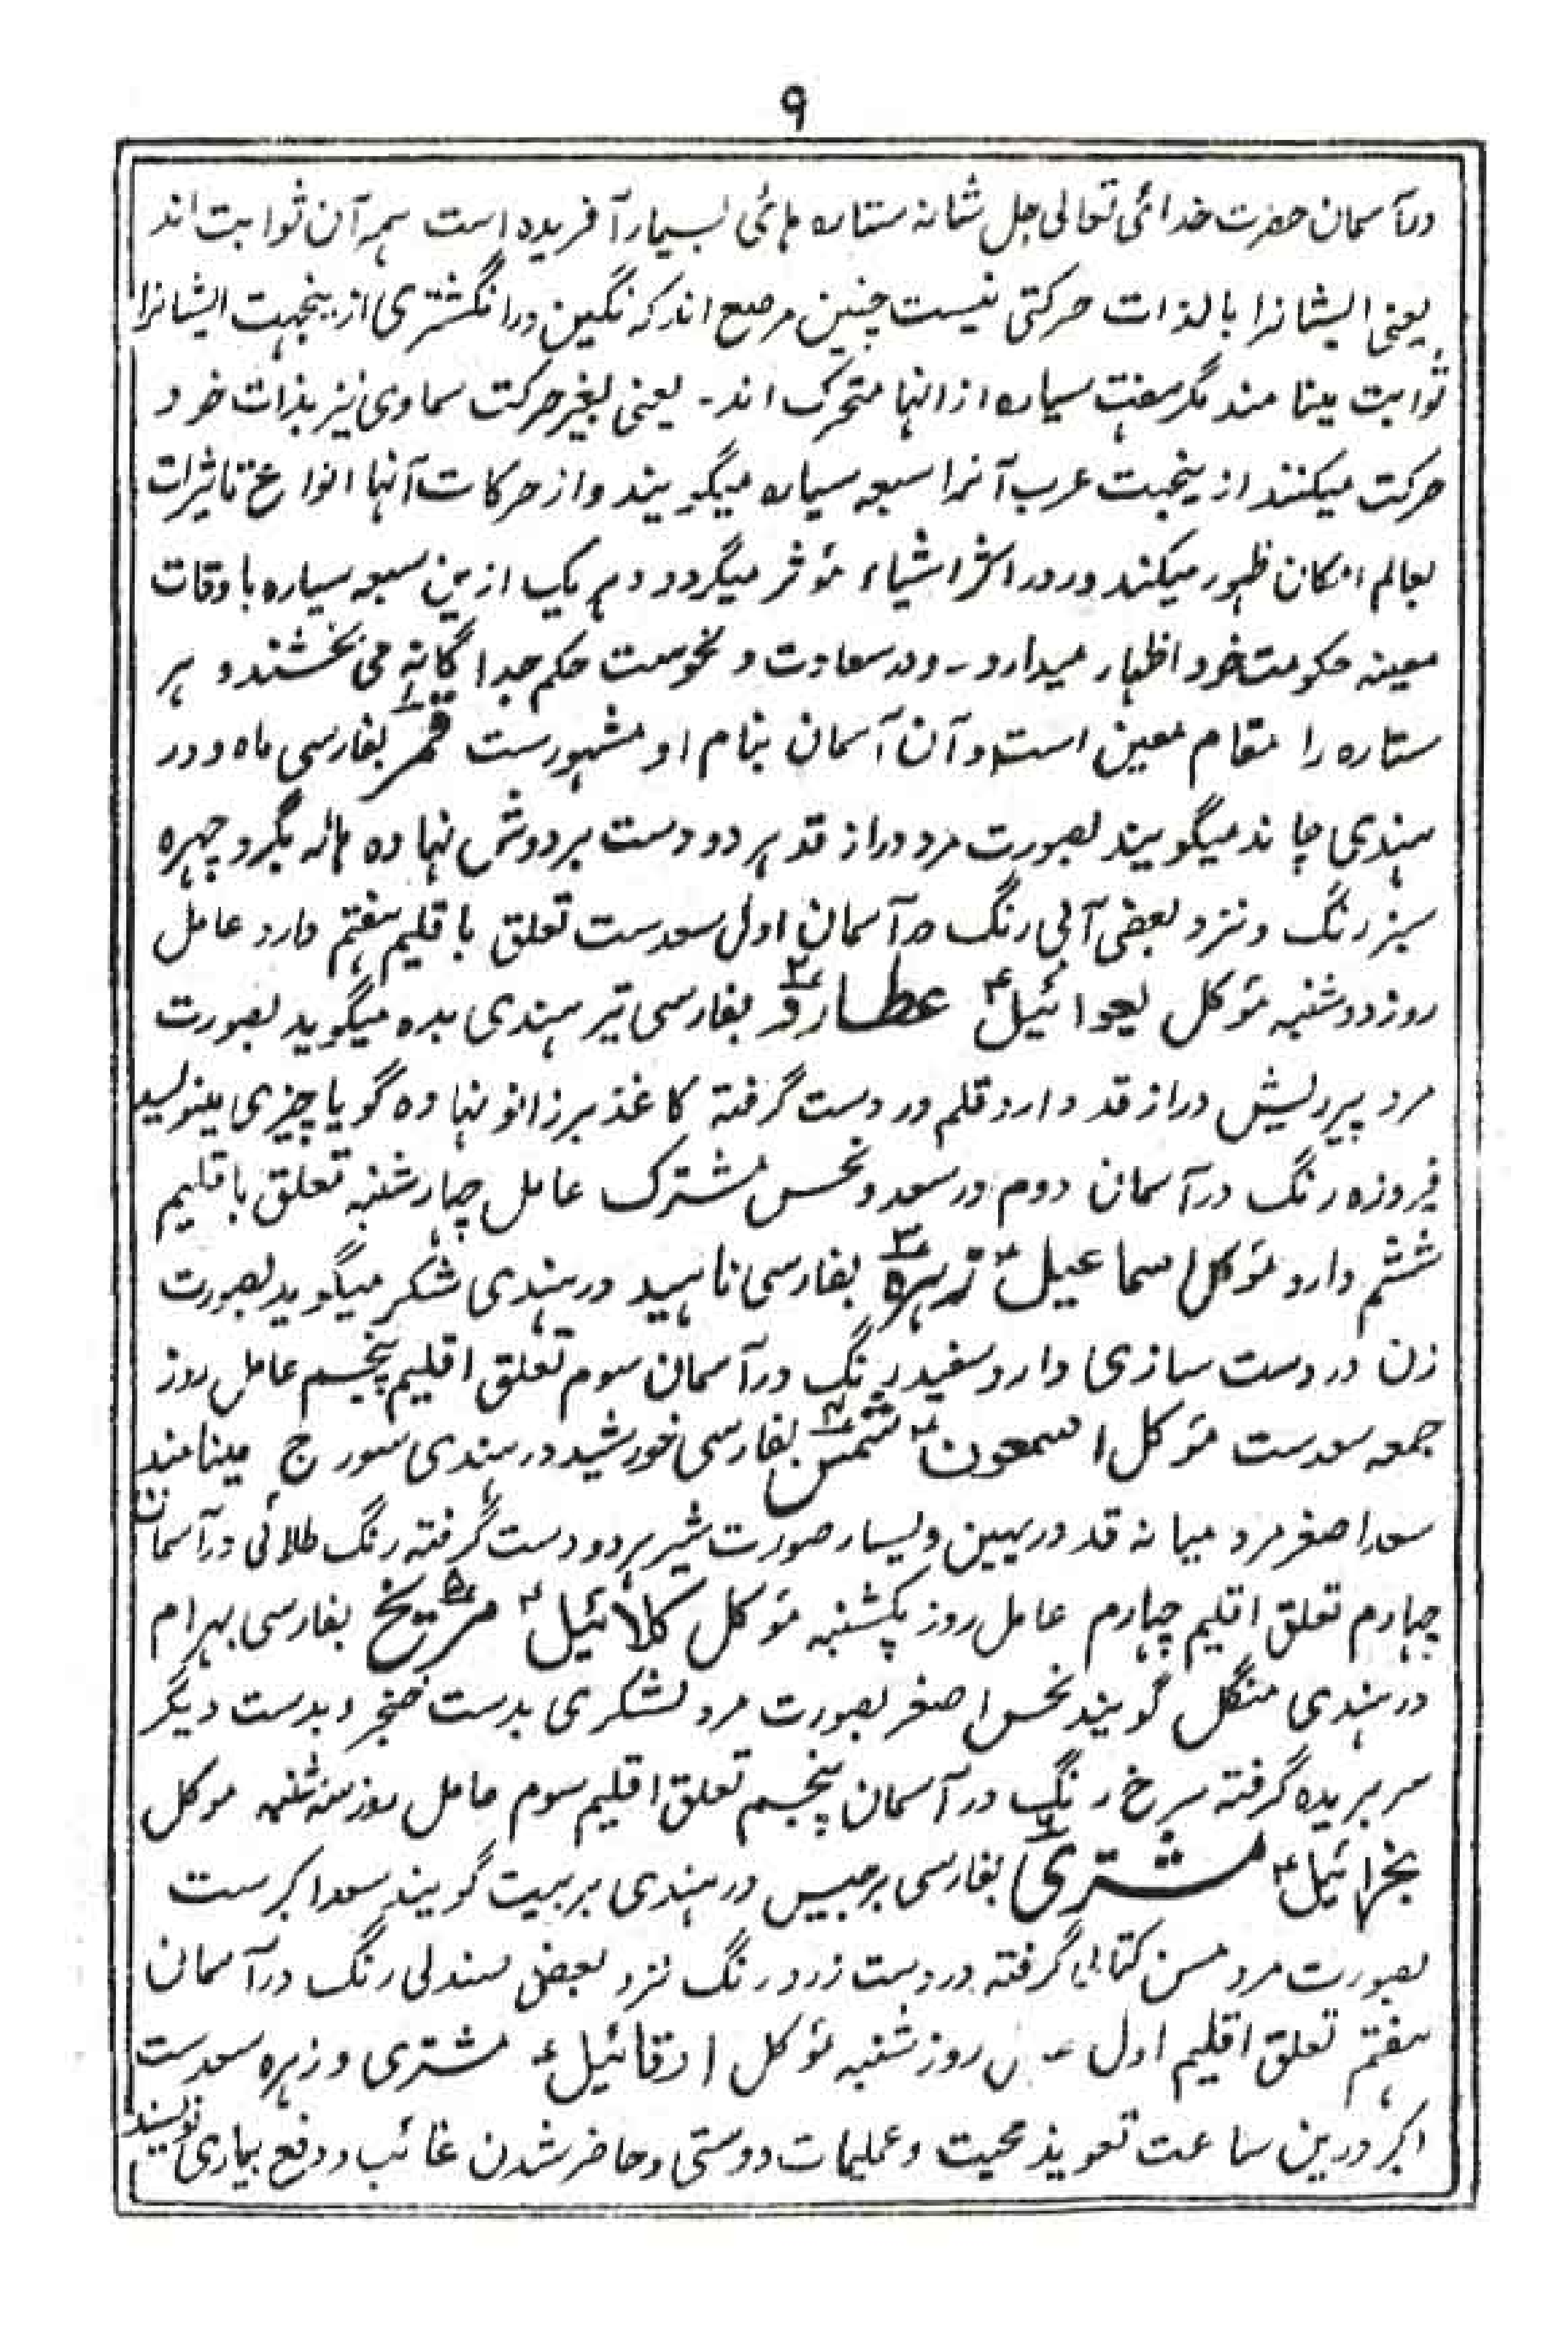 ۹
در آسمان حضرت خدائی تعالی جل شانہ ستارہ ہائی بسیار آفریدہ است ہمہ آن ثوابت اند
یعنی ایشانرا بالذات حرکتی نیست چنین مرصع اند کہ نگین در انگشتری از ینجہت ایشانرا
ثوابت مینامند مگر ہفت سیارہ از انہا متحرک اند۔ یعنی بغیر حرکت سماوی نیز بذات خود
حرکت میکنند از ینجہت عرب آنرا سبعہ سیارہ میگویند و از حرکات آنہا انواع تاثیرات
بعالم امکان ظہور میکند و در اکثر اشیاء مؤثر میگردد و ہر یک ازین سبعہ سیارہ باوقات
معینہ حکومت خود اظہار میدارد۔ و در سعادت و نحوست حکم جداگانہ می بخشند و ہر
ستارہ را مقام معین است و آن آسمان بنام او مشہورست قمر بفارسی ماہ و در
ہندی چاند میگویند بصورت مرد دراز قد ہر دو دست بر دوش نہادہ ہالہ بگرد چہرہ
سبز رنگ و نزد بعضی آبی رنگ در آسمان اول سعدست تعلق باقلیم ہفتم دارد عامل
روز دوشنبہ مؤکل لیحوائیل ؑ عطارد بفارسی تیر ہندی بدہ میگوید بصورت
مرد پیر ریش دراز قد دارد قلم در دست گرفتہ کاغذ بر زانو نہادہ گویا چیزی مینویسد
فیروزہ رنگ در آسمان دوم در سعد و نحس مشترک عامل چہارشنبہ تعلق باقلیم
ششم دارد مؤکل اسماعیل ؑ زہرہ بفارسی ناہید در ہندی شکر میگوید بصورت
زن در دست سازی دارد سفید رنگ در آسمان سوم تعلق اقلیم پنجم عامل روز
جمعہ سعدست مؤکل اسمعون ؑ شمس بفارسی خورشید در ہندی سورج مینامند
سعد اصغر مرد میانہ قد در یمین و یسار صورت شیر ہر دو دست گرفتہ رنگ طلائی در آسمان
چہارم تعلق اقلیم چہارم عامل روز یکشنبہ مؤکل کلائیل ؑ مریخ بفارسی بہرام
در ہندی منگل گویند نحس اصغر بصورت مرد لشکری بدست خنجر و بدست دیگر
سر بریدہ گرفتہ سرخ رنگ در آسمان پنجم تعلق اقلیم سوم عامل روز سہ شنبہ موکل
ؑ مشتری بفارسی برجیس در ہندی برہپت گویند سعد اکبرست
بصورت مرد مسن کتابی گرفتہ در دست زرد رنگ نزد بعض سندلی رنگ در آسمان
ہفتم تعلق اقلیم اول روز شنبہ مؤکل ارقائیل ؑ مشتری و زہرہ سعدست
اکر درین ساعت تعویذ محبت و عملیات دوستی و حاضر شدن غائب و دفع بیماری نویسند